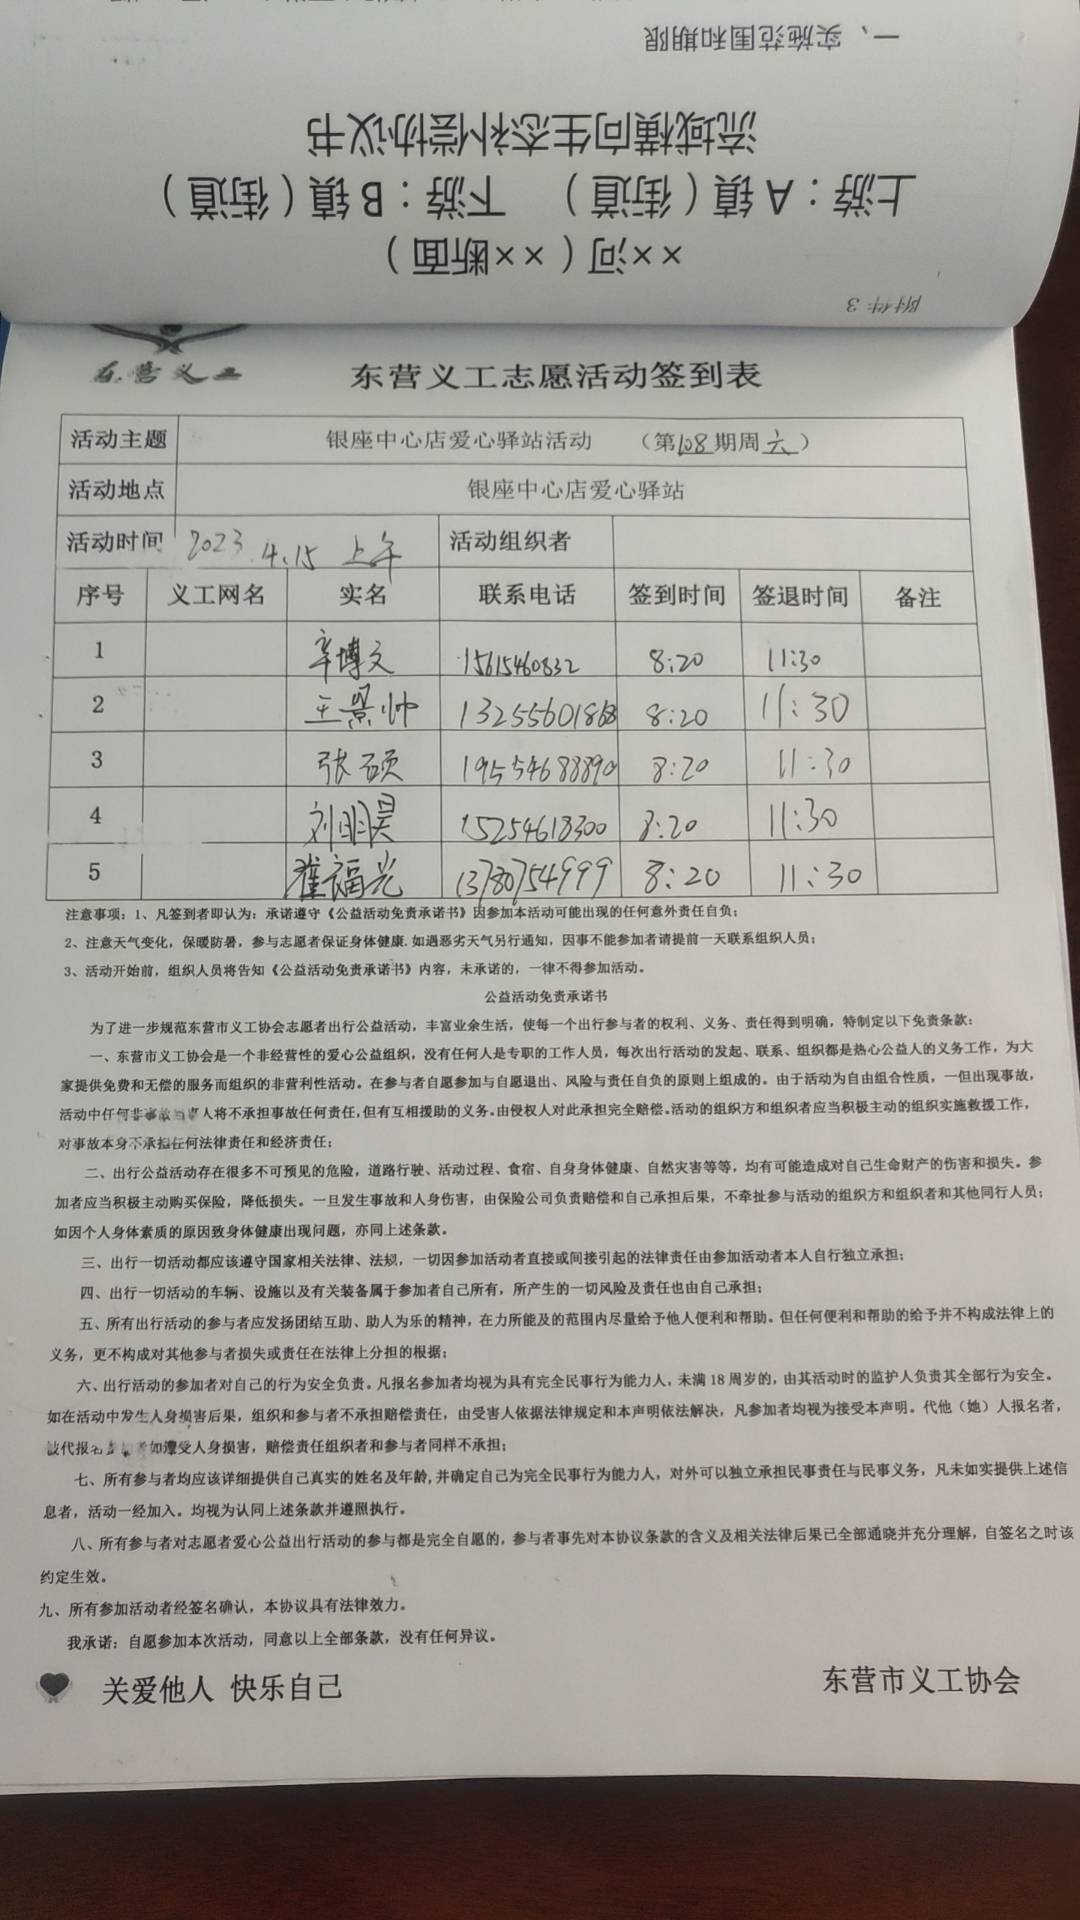 一、实施范围和期限
流域横向生态补偿协议书
上游：A镇（街道） 下游：B镇（街道）
××河（××断面）
附件3
东营义工
东营义工志愿活动签到表
活动主题 银座中心店爱心驿站活动 （第108期周六）
活动地点 银座中心店爱心驿站
活动时间 2023.4.15 上午 活动组织者
序号 义工网名 实名 联系电话 签到时间 签退时间 备注
1 辛博文 15615460832 8:20 11:30
2 王景帅 13255601868 8:20 11:30
3 张硕 19554688890 8:20 11:30
4 刘明昊 15254618300 8:20 11:30
5 崔福光 13780754999 8:20 11:30
注意事项：1、凡签到者即认为：承诺遵守《公益活动免责承诺书》因参加本活动可能出现的任何意外责任自负；
2、注意天气变化，保暖防暑，参与志愿者保证身体健康.如遇恶劣天气另行通知，因事不能参加者请提前一天联系组织人员；
3、活动开始前，组织人员将告知《公益活动免责承诺书》内容，未承诺的，一律不得参加活动。
公益活动免责承诺书
为了进一步规范东营市义工协会志愿者出行公益活动，丰富业余生活，使每一个出行参与者的权利、义务、责任得到明确，特制定以下免责条款：
一、东营市义工协会是一个非经营性的爱心公益组织，没有任何人是专职的工作人员，每次出行活动的发起、联系、组织都是热心公益人的义务工作，为大
家提供免费和无偿的服务而组织的非营利性活动。在参与者自愿参加与自愿退出、风险与责任自负的原则上组成的。由于活动为自由组合性质，一但出现事故，
活动中任何非事故 人将不承担事故任何责任，但有互相援助的义务。由侵权人对此承担完全赔偿。活动的组织方和组织者应当积极主动的组织实施救援工作，
对事故本身不承担任何法律责任和经济责任；
二、出行公益活动存在很多不可预见的危险，道路行驶、活动过程、食宿、自身身体健康、自然灾害等等，均有可能造成对自己生命财产的伤害和损失。参
加者应当积极主动购买保险，降低损失。一旦发生事故和人身伤害，由保险公司负责赔偿和自己承担后果，不牵扯参与活动的组织方和组织者和其他同行人员；
如因个人身体素质的原因致身体健康出现问题，亦同上述条款。
三、出行一切活动都应该遵守国家相关法律、法规，一切因参加活动者直接或间接引起的法律责任由参加活动者本人自行独立承担；
四、出行一切活动的车辆、设施以及有关装备属于参加者自己所有，所产生的一切风险及责任也由自己承担；
五、所有出行活动的参与者应发扬团结互助、助人为乐的精神，在力所能及的范围内尽量给予他人便利和帮助。但任何便利和帮助的给予并不构成法律上的
义务，更不构成对其他参与者损失或责任在法律上分担的根据；
六、出行活动的参加者对自己的行为安全负责。凡报名参加者均视为具有完全民事行为能力人，未满18周岁的，由其活动时的监护人负责其全部行为安全。
如在活动中发生人身损害后果，组织和参与者不承担赔偿责任，由受害人依据法律规定和本声明依法解决，凡参加者均视为接受本声明。代他（她）人报名者，
被代报名 如遭受人身损害，赔偿责任组织者和参与者同样不承担；
七、所有参与者均应该详细提供自己真实的姓名及年龄，并确定自己为完全民事行为能力人，对外可以独立承担民事责任与民事义务，凡未如实提供上述信
息者，活动一经加入。均视为认同上述条款并遵照执行。
八、所有参与者对志愿者爱心公益出行活动的参与都是完全自愿的，参与者事先对本协议条款的含义及相关法律后果已全部通晓并充分理解，自签名之时该
约定生效。
九、所有参加活动者经签名确认，本协议具有法律效力。
我承诺：自愿参加本次活动，同意以上全部条款，没有任何异议。
关爱他人 快乐自己 东营市义工协会